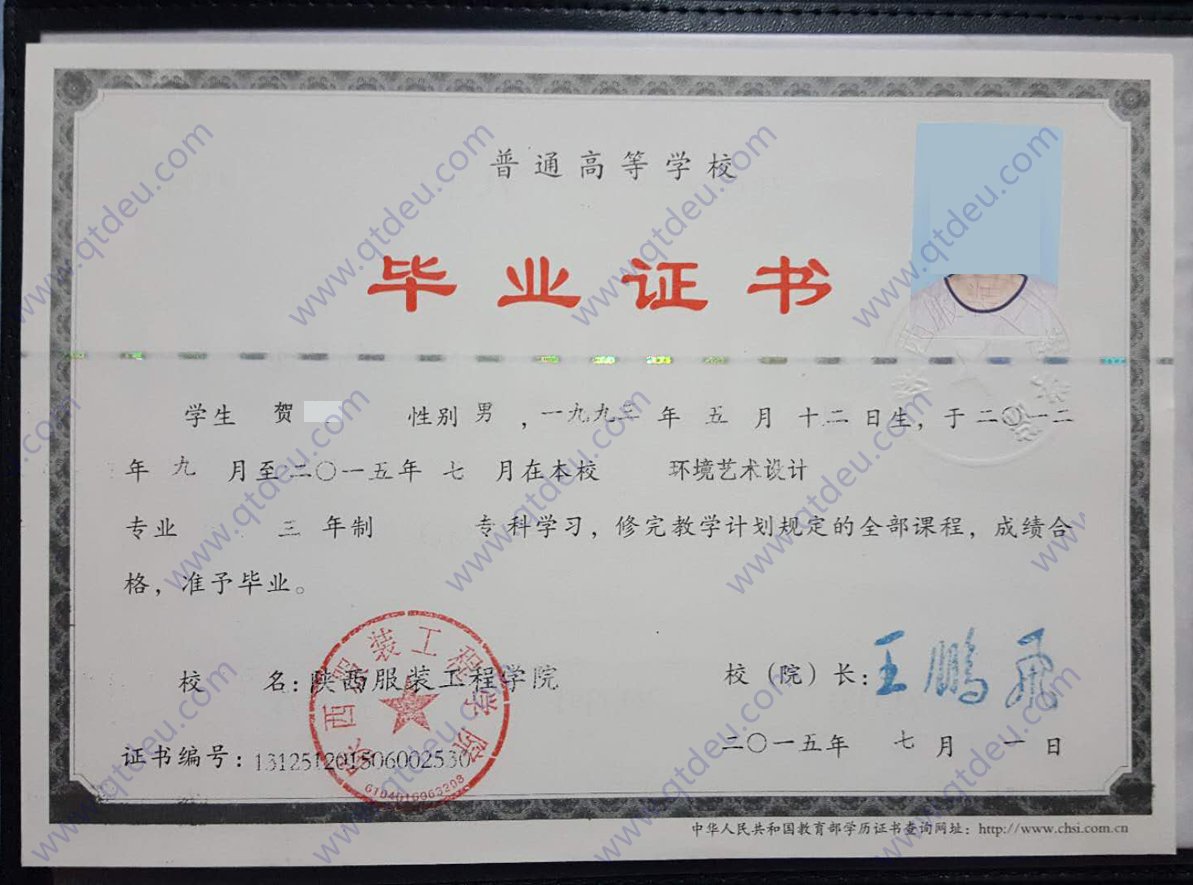 普通高等学校
毕业证书
学生 贺 性别 男 ,一九九三 年 五 月 十二 日生, 于二〇一二
年 九 月至二〇一五年 七 月在本校 环境艺术设计
专业 三 年制 专科学习, 修完教学计划规定的全部课程, 成绩合
格, 准予毕业。
校 名: 陕西服装工程学院
校（院）长: 王鹏飞
证书编号: 131251201506002530
二〇一五年 七 月 一 日
陕西服装工程学院
中华人民共和国教育部学历证书查询网址: http://www.chsi.com.cn
www.qtdeu.com